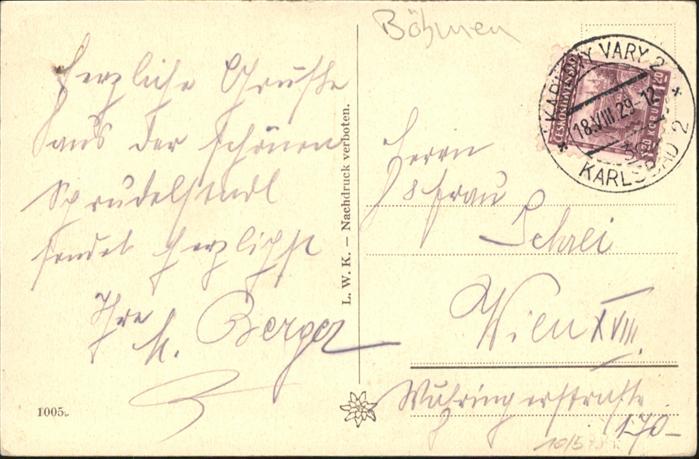 Böhmen
Herzliche Grüße
aus der schönen
Sprudelstadt
sendet herzlichst
Ihre
M. Berger
1005.
L. W. K. — Nachdruck verboten.
KARLOVY VARY 2
18.VIII.29-12
KARLSBAD 2
Herrn
& Frau
Wien XVIII.
Währingerstraße
170-